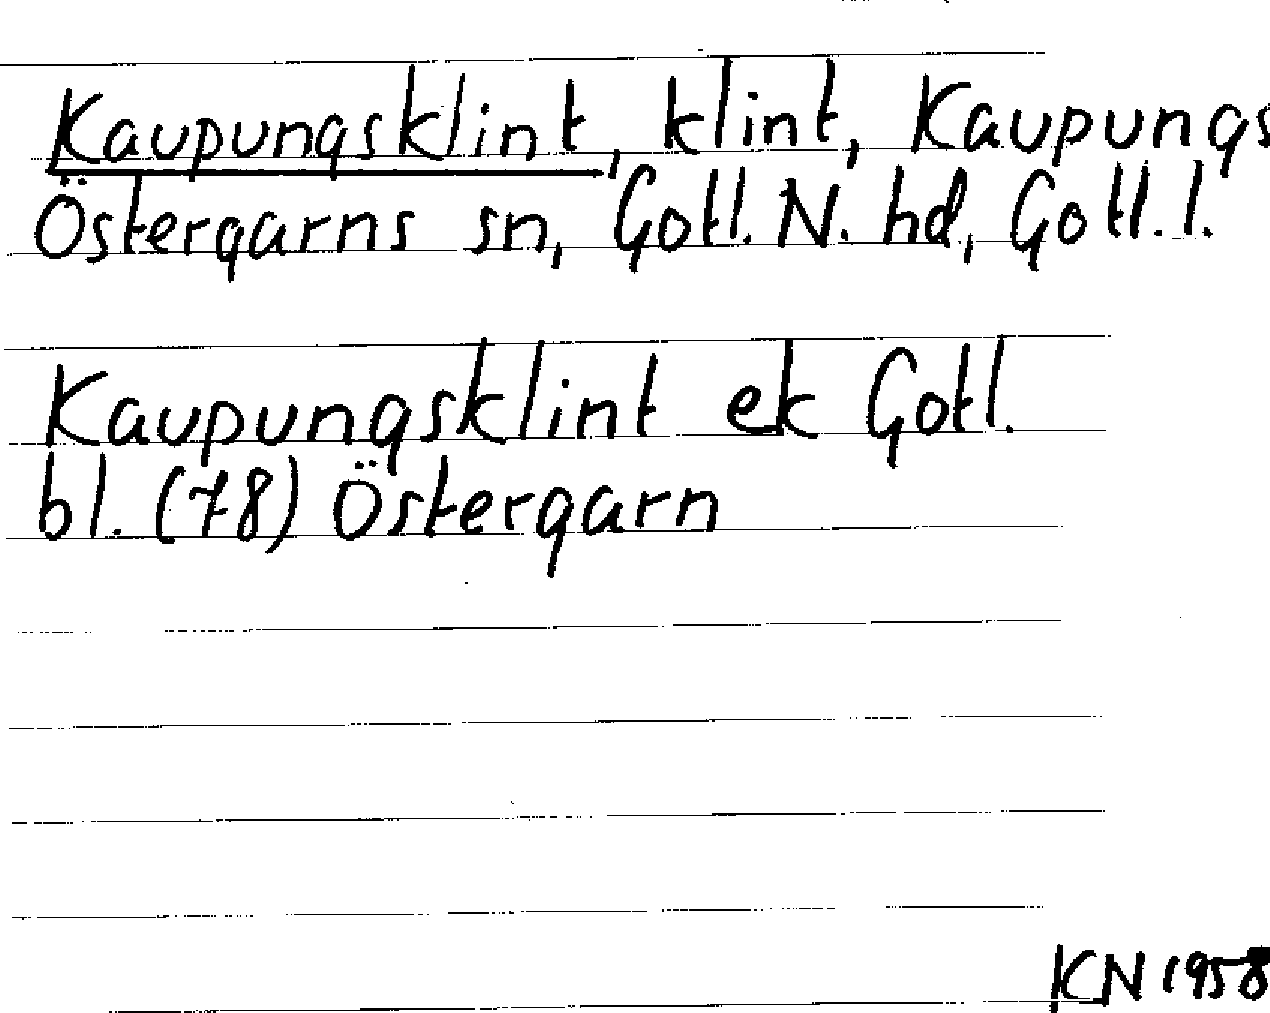 Kaupungsklint, klint, Kaupungs
Östergarns sn, Gotl. N. hd, Gotl. l.
Kaupungsklint ek Gotl.
bl. (78) Östergarn
KN 1958